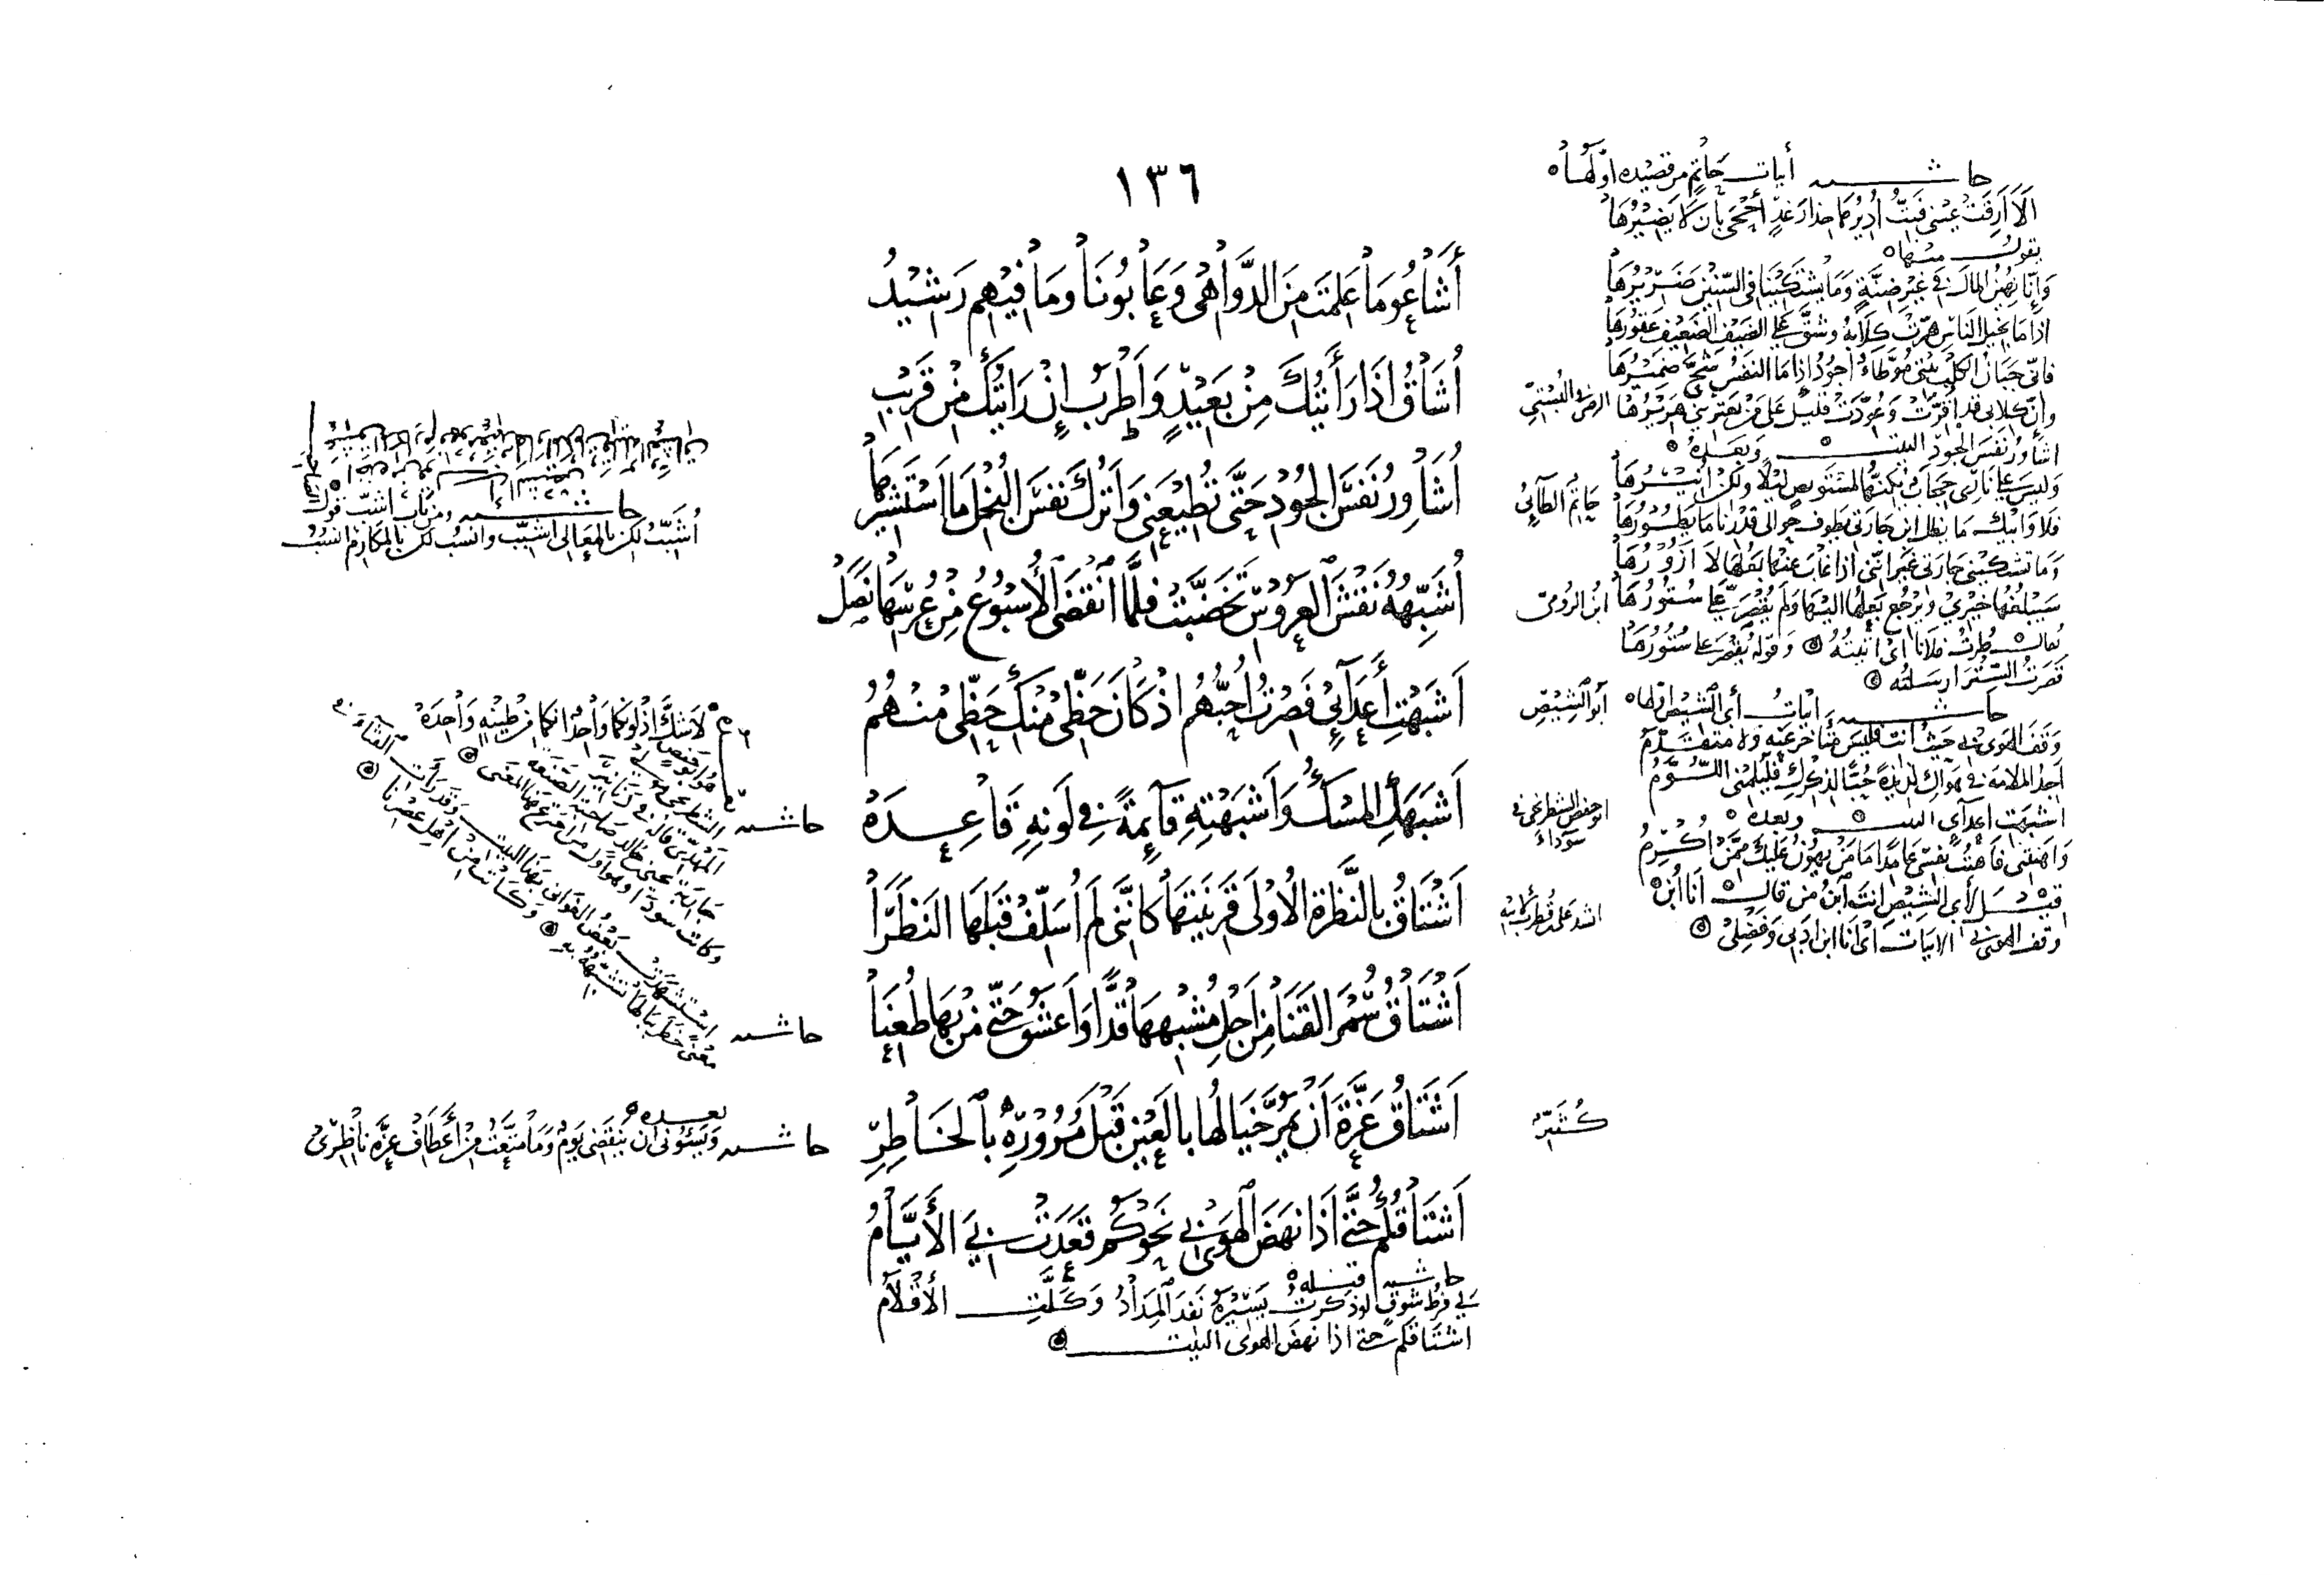 ١٣٦
أَشَاعُوا مَا عَلِمْتَ مِنَ الدَّوَاهِي وَعَابُونَا وَمَا فِيهِم رَشِيدُ
أُشَاقُ اذَا رَأَيْتُكَ مِنْ بَعِيْدٍ وَأَطْرَبُ إِنْ رَأَيْتُكَ مِنْ قَرِيْبِ
أُشَاوِرُ نَفْسَ الجُوْدِ حَتَّى تُطِيْعَنِي وَأَتْرُكَ نَفْسَ البُخْلِ مَا اَسْتَشِيْرُهَا
أُشَبِّهُهُ نَقْشَ العَرُوْسِ تَخَضَّبَتْ فَلَمَّا انْقَضَى الأُسْبُوْعُ مِنْ عُرْسِهَا نَصَلْ
اَشْبَهْتِ أَعْدَآئِي فَصِرْتُ اُحِبُّهُم اذْ كَانَ حَظِّي مِنْكِ حَظِّي مِنْهُمُ
اَشْبَهَكِ المِسْكُ وَاَشْبَهْتِهِ قَآئِمَةً فِي لَوْنِهِ قَاعِدَهْ
اَشْتَاقُ بِالنَّظْرَةِ الاُوْلَى قَرِيْنَتَهَا كَانَّنِي لَمْ اُسَلِّفْ قَبْلَهَا النَظَرَا
اَشْتَاقُ سُمْرَ القَنَا مِنْ اَجْلِ مُشْبِهِهَا قَدًّا وَاَعْشَقُ حَتَّى مَنْ بِهَا طُعِنَا
اَشْتَاقُ عَزَّةَ اَنْ يَمُرَّ خَيَالُهَا بِالعَيْنِ قَبْلَ مُرُوْرِهِ بِالخَاطِرِ
اَشْتَاقُكُمْ حَتَّى اذَا نَهَضَ الهَوَى بِي نَحْوَكُم قَعَدَتْ بِيَ الأَيَّامُ
حاشيه قبله
بِي فرط شوقٍ لوذكرت يسيره نَفِدَ المِدَادُ وَكَلَّتِ الأَقْلَامُ
اشتاقكم حتى اذا نهض الهوى البيت
حاشيه أبيات حاتم من قصيده اولها
الا ارقت عيني فبت أديرها حذار غدٍ أحجى بأن لا يضيرها
يقول منها
وإنا نهين المال في غير ضنة وما يشتكينا في السنين ضريرها
اذا ما بخيل الناس هرت كلابه وشق على الضيف الضعيف عقورها
فاني جبان الكلب بيتي موطأ اجود اذا ما النفس شح ضميرها
وإن كلابي قد أقرت وعودت قليل على من يعتريني هريرها
اشاور نفس الجود البيت وبعده
وليس على ناري حجاب يكنها لمستوبص ليلا ولكن انيرها
فلا وابيك ما يظل ابن جارتي يطوف حوالي قدرنا ما يطورها
وما تشتكيني جارتي غير انني اذا غاب عنها بعلها لا ازورها
سيبلغها خيري ويرجع بعلها اليها ولم يقصر علي ستورها
يقال طرت فلانا اي اتيته وقوله يقصر علي ستورها
قصرت الستر ارسلته
حاشيه ابيات أبي الشيص اولها
وقف الهوى بي حيث انت فليس لي متأخر عنه ولا متقدم
اجد الملامة في هواك لذيذة حبا لذكرك فليلمني اللوم
اشبهت اعدآي البيت وبعده
واهنتني فاهنت نفسي عامدا ما من يهون عليك ممن اكرم
قيل لأبي الشيص انت ابن من قال انا ابن
وقف الهوى بي الابيات اي انا ابن ادبي وفضلي
البستي
حاتم الطآئي
ابن الرومي
ابو الشيص
ابو حفص الشطرنجي في
سودآء
كثير
حاشيه ومن باب اشبب قول
أشبب لكن بالمعالي اشبب وانسب لكن بالمكارم انسب
لا شك اذ لونكما واحد انكما من طينه واحده
حاشيه
حاشيه
بعده
حاشيه ويسؤني ان ينقضي يوم وما متعت من أعطاف عزة ناظري